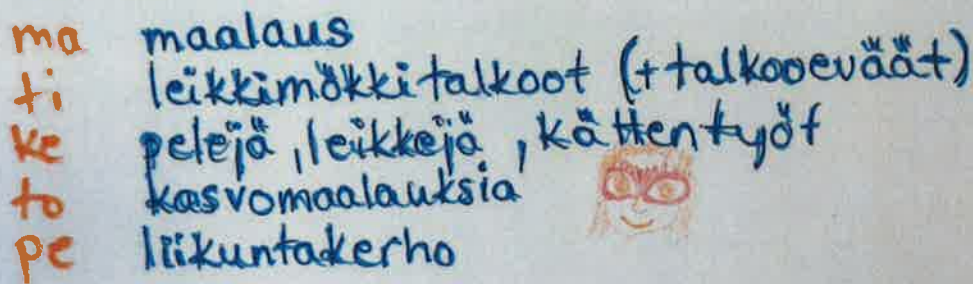 ma maalaus
ti leikkimökkitalkoot (+talkooeväät)
ke pelejä, leikkejä, kättentyöt
to kasvomaalauksia
pe liikuntakerho